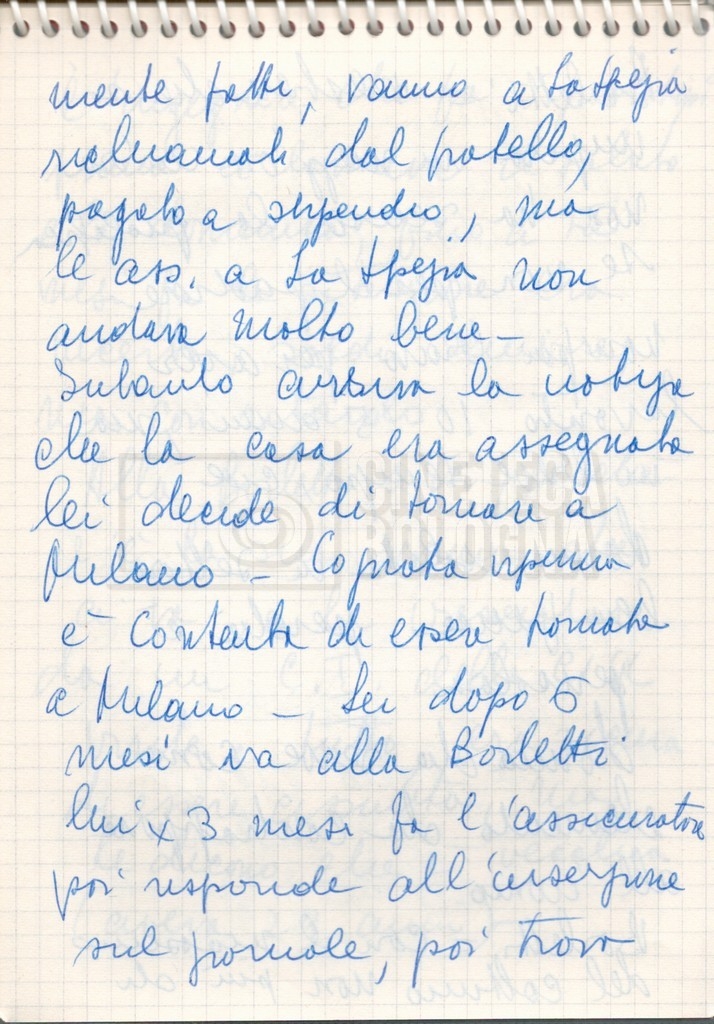 mente fatti, vanno a La Spezia
richiamati dal fratello,
pagato a stipendio, ma
le ass. a La Spezia non
andava molto bene -
Intanto arriva la notizia
che la casa era assegnata
lei decide di tornare a
Milano -
è contenta di essere tornata
a Milano - Lei dopo 6
mesi va alla Borletti
lui x 3 mesi fa l'assicuratore
poi risponde all'inserzione
sul giornale, poi trova
CINETECA
BOLOGNA